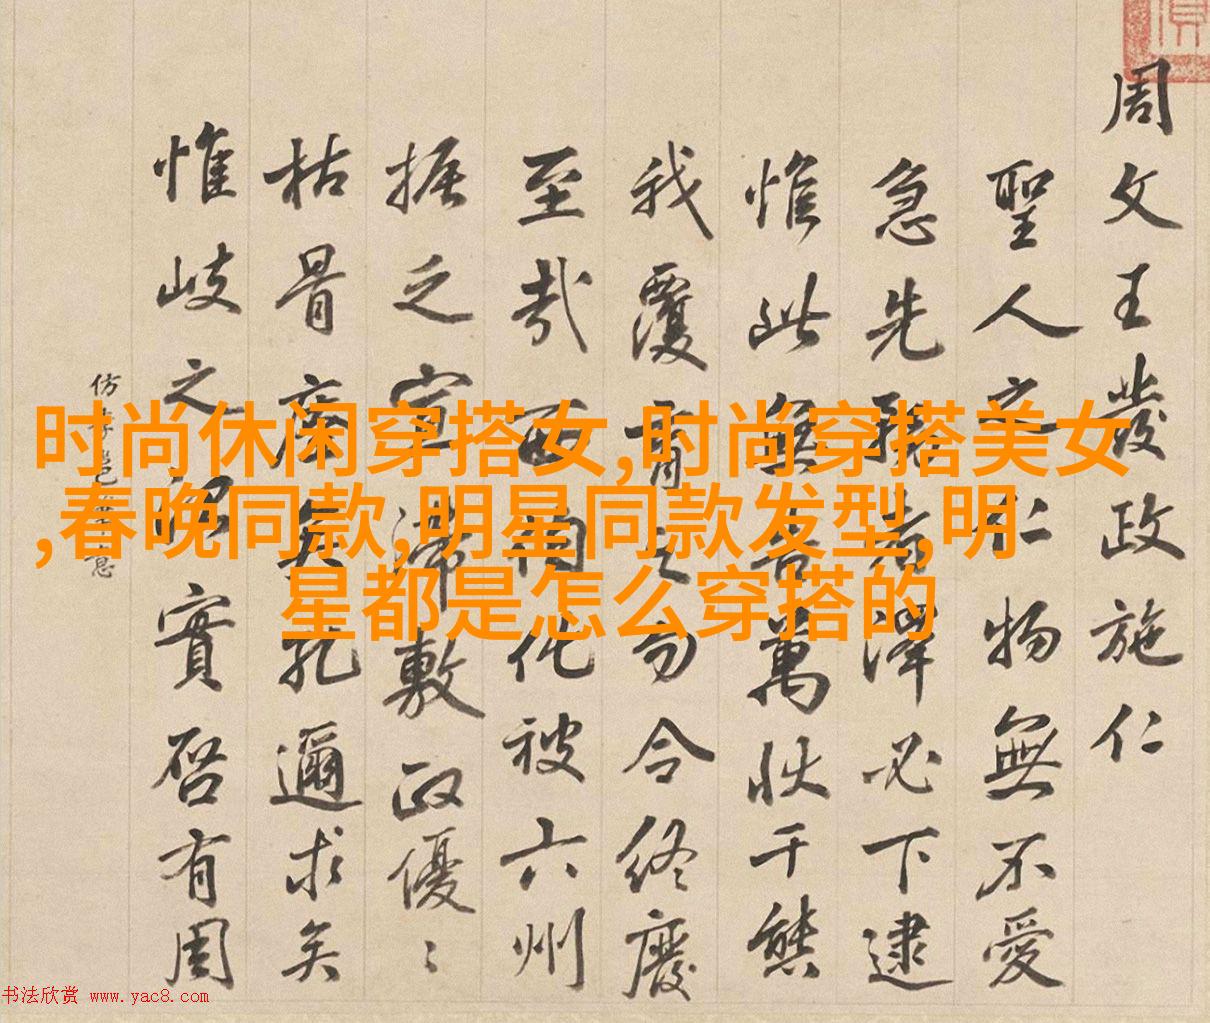 周文王發政施仁
聖人之仁物無不愛
急先澤必下逮
惟此無告萬狀千態
我覆育之勿令終廢
至哉西化被六州
振之宣沛敷政優〻
枯骨矣孔邇求矣
惟岐之實啓有周
仿息
时尚休闲穿搭女,时尚穿搭美女
,春晚同款,明星同款发型,明
星都是怎么穿搭的
书法欣赏 www.yac8.com